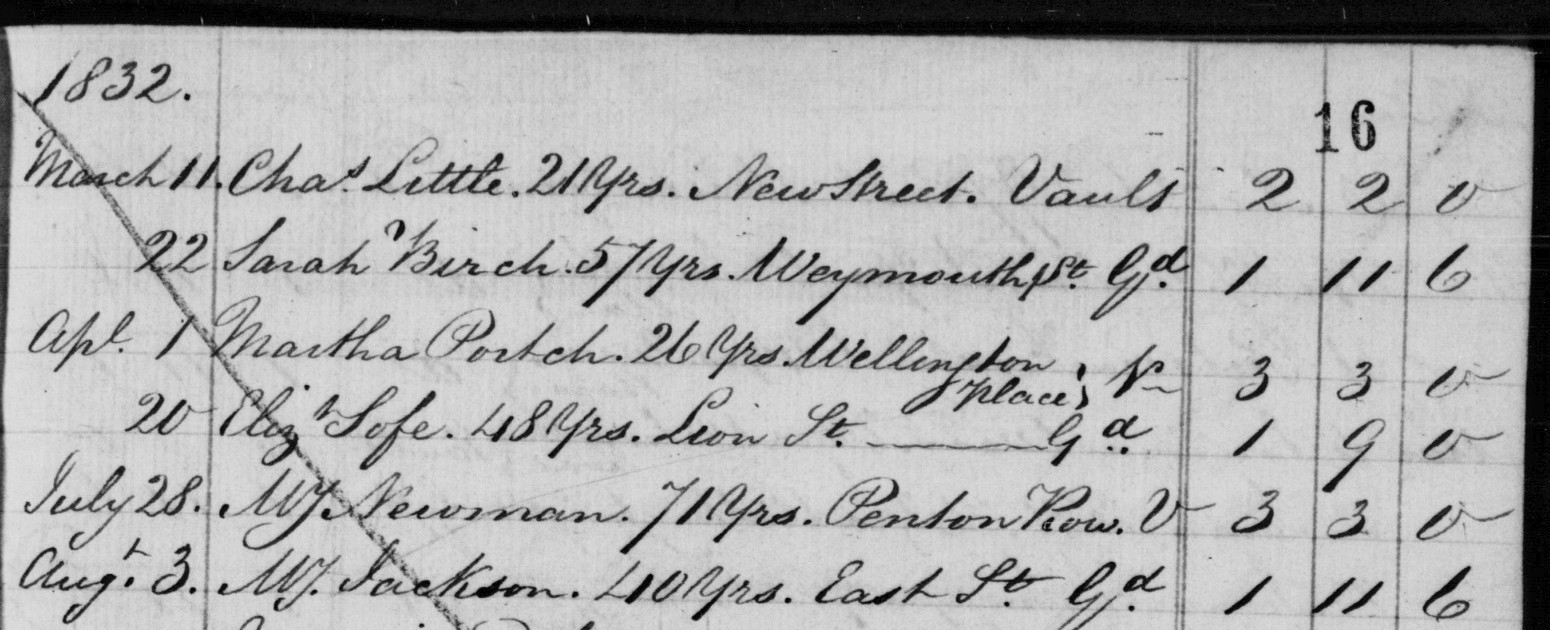 1832.
16
March 11. Chas. Little. 21 Yrs. New Street. Vault 2 2 0
22 Sarah Birch. 57 Yrs. Weymouth St. Gd. 1 11 6
Apl. 1 Martha Portch. 26 Yrs. Wellington
Place } V 3 3 0
20 Elizh Sofe. 48 Yrs. Lion St. Gd. 1 9 0
July 28. Newman. 71 Yrs. Penton Row. V 3 3 0
Augt. 3. Jackson. 40 Yrs. East St. Gd. 1 11 6